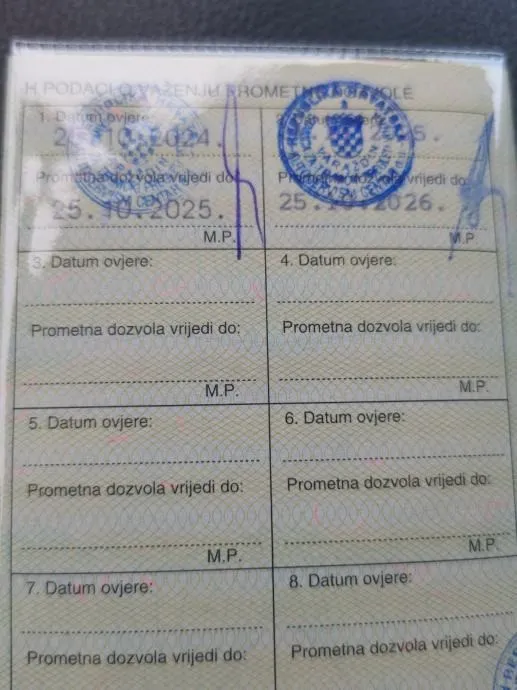 H PODACI O VAŽENJU PROMETNE DOZVOLE
1. Datum ovjere:
10.2024.
Prometna dozvola vrijedi do:
25.10.2025.
M.P.
Prometna dozvola vrijedi do:
25.10.2026.
M.P
REPUBLIKA HRVATSKA
VARAŽDIN
3. Datum ovjere:
4. Datum ovjere:
Prometna dozvola vrijedi do:
Prometna dozvola vrijedi do:
M.P.
M.P.
5. Datum ovjere:
6. Datum ovjere:
Prometna dozvola vrijedi do:
Prometna dozvola vrijedi do:
M.P.
M.P.
7. Datum ovjere:
8. Datum ovjere:
Prometna dozvola vrijedi do:
Prometna dozvola vrijedi do: